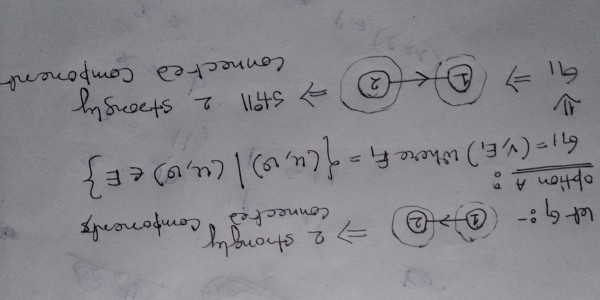 let G :- 1 2 ⇒ 2 strongly
connected components
option A :
G1 = (V, E1) where E1 = {(u, v) | (u, v) ∈ E}
⇓
G1 ⇒ 1 2 ⇒ still 2 strongly
connected component